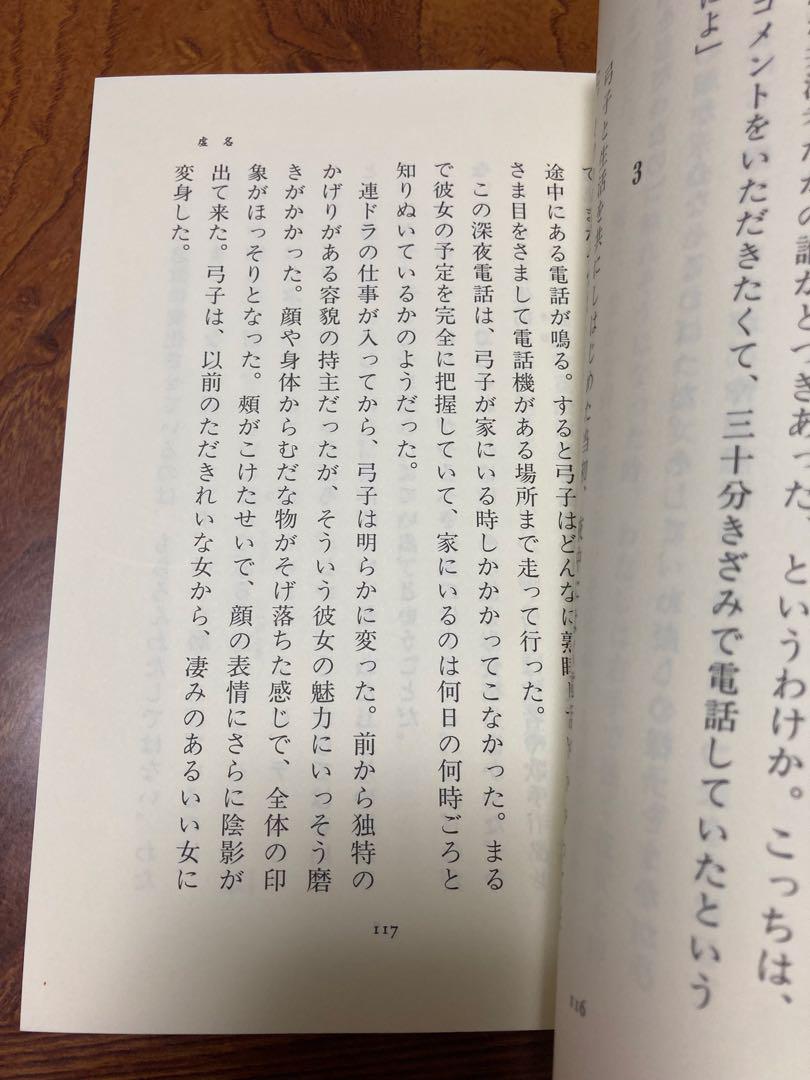 の誰かとつきあった、というわけか。こっちは、
コメントをいただきたくて、三十分きざみで電話していたという
によ」
116
虚名
3
弓子と生活を共にしはじめた当初、
途中にある電話が鳴る。すると弓子はどんなに熟睡
さま目をさまして電話機がある場所まで走って行った。
この深夜電話は、弓子が家にいる時しかかかってこなかった。まる
で彼女の予定を完全に把握していて、家にいるのは何日の何時ごろと
知りぬいているかのようだった。
連ドラの仕事が入ってから、弓子は明らかに変った。前から独特の
かげりがある容貌の持主だったが、そういう彼女の魅力にいっそう磨
きがかかった。顔や身体からむだな物がそげ落ちた感じで、全体の印
象がほっそりとなった。頰がこけたせいで、顔の表情にさらに陰影が
出て来た。弓子は、以前のただきれいな女から、凄みのあるいい女に
変身した。
117